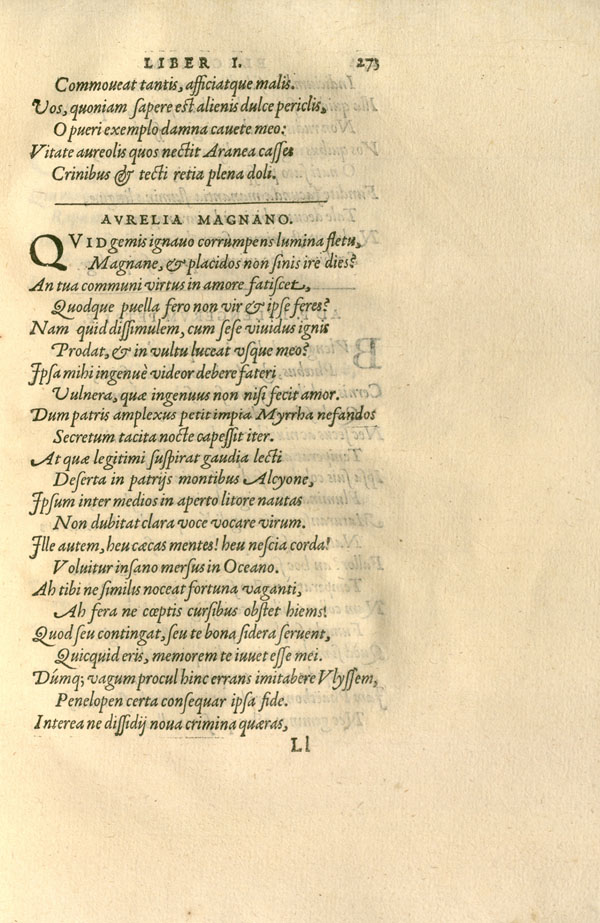 LIBER I. 273
Commoueat tantis, afficiatque malis.
Vos, quoniam sapere est alienis dulce periclis,
O pueri exemplo damna cauete meo:
Vitate aureolis quos nectit Aranea casses
Crinibus & tecti retia plena doli.
AVRELIA MAGNANO.
QVID gemis ignauo corrumpens lumina fletu,
Magnane, & placidos non sinis ire dies?
An tua communi virtus in amore fatiscet,
Quodque puella fero non vir & ipse feres?
Nam quid dissimulem, cum sese viuidus ignis
Prodat, & in vultu luceat vsque meo?
Ipsa mihi ingenuè videor debere fateri
Vulnera, quæ ingenuus non nisi fecit amor.
Dum patris amplexus petit impia Myrrha nefandos
Secretum tacita nocte capessit iter.
At quæ legitimi suspirat gaudia lecti
Deserta in patrijs montibus Alcyone,
Ipsum inter medios in aperto litore nautas
Non dubitat clara voce vocare virum.
Ille autem, heu cæcas mentes! heu nescia corda!
Voluitur insano mersus in Oceano.
Ah tibi ne similis noceat fortuna vaganti,
Ah fera ne cœptis cursibus obstet hiems!
Quod seu contingat, seu te bona sidera seruent,
Quicquid eris, memorem te iuuet esse mei.
Dúmq; vagum procul hinc errans imitabere Vlyssem,
Penelopen certa consequar ipsa fide.
Interea ne dissidij noua crimina quæras,
Ll